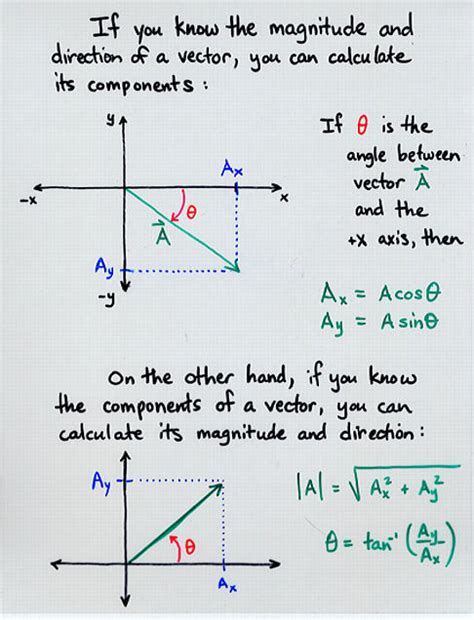 If you know the magnitude and
direction of a vector, you can calculate
its components :
y
If θ is the
angle between
vector A⃗
and the
+x axis, then
Ax
-x
x
θ
A⃗
Ay
-y
Ax = A cosθ
Ay = A sinθ
On the other hand, if you know
the components of a vector, you can
calculate its magnitude and direction :
Ay
θ
Ax
|A| = √(Ax² + Ay²)
θ = tan⁻¹ (Ay/Ax)